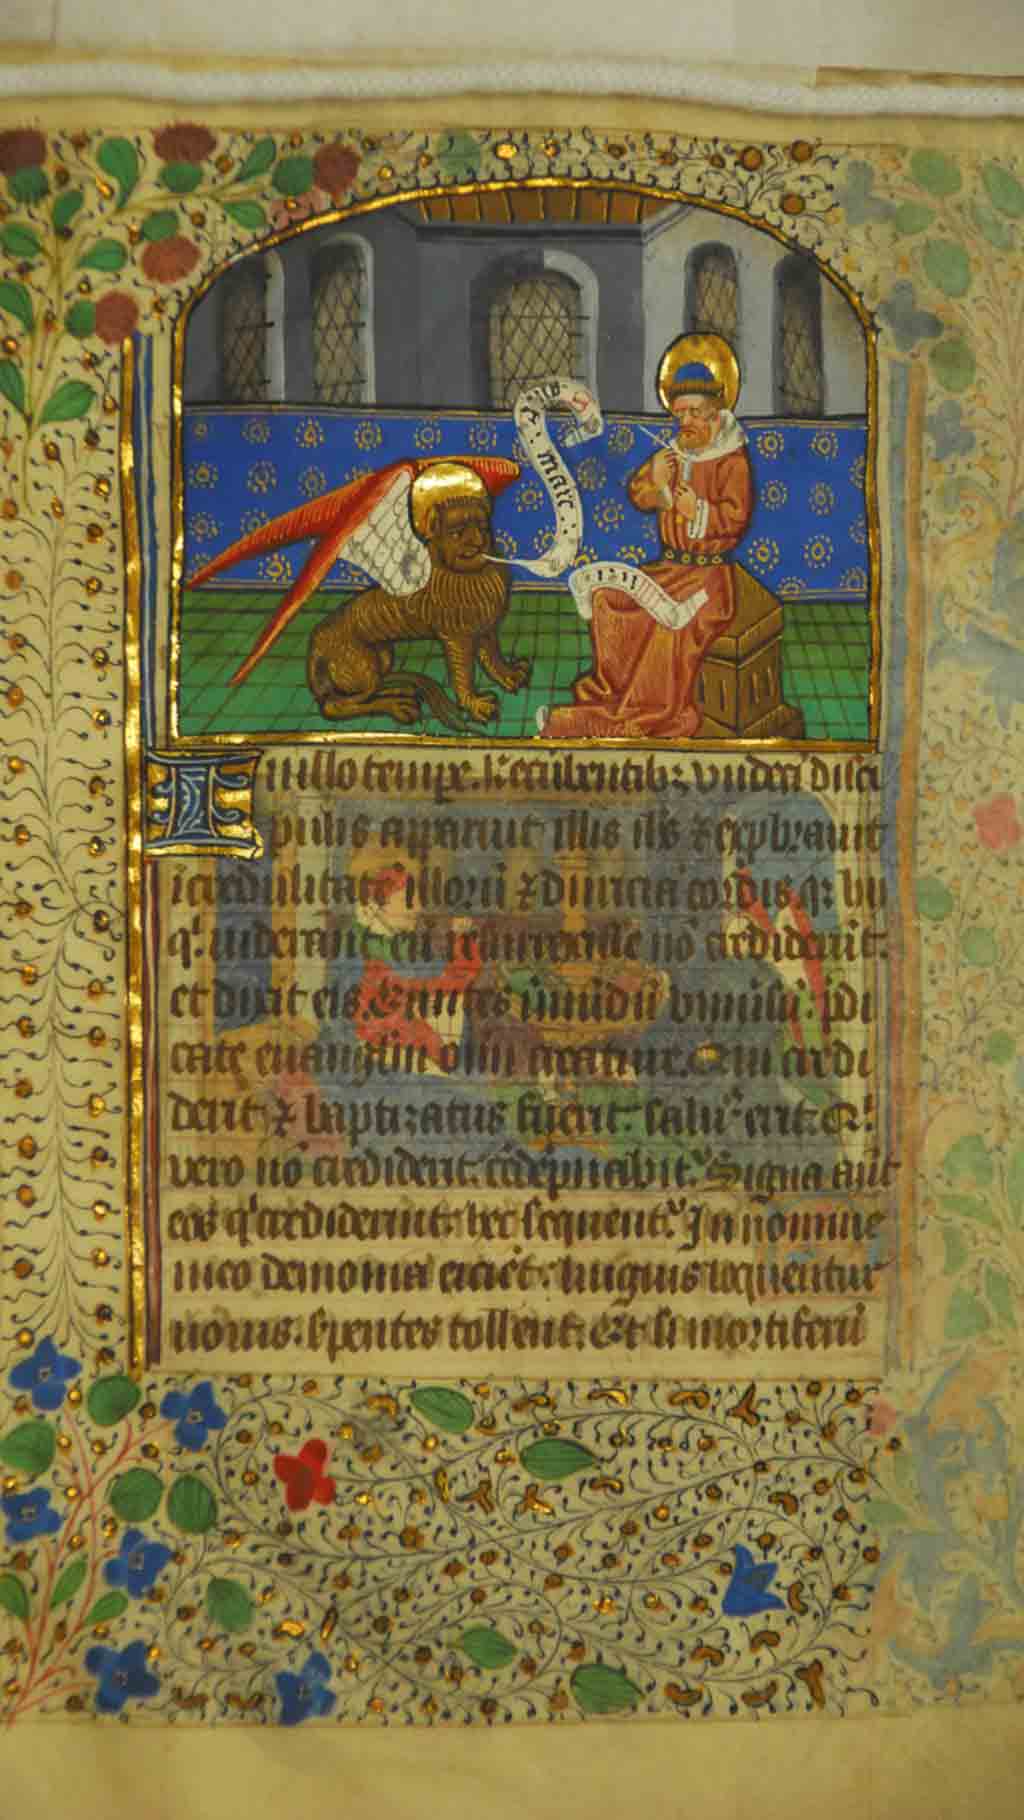 S. marc.
In illo tempe. Recūbentib; vndeci disci
pulis apparuit illis ihs & exprobrauit
icredulitate illorū & duricia cordis. q; hii
q' uiderant eū resurrexisse nō crediderūt.
et dixit eis. Euntes ī mūdū vniuersū. pdi
cate euangliu omi creature. Qui credi
derit & baptizatus fuerit. saluus erit. Qi
vero nō crediderit. cōdēpnabit. Signa aūt
eos q' crediderint. hec sequent. In nomine
meo demonia eicient. linguis loquentur
nouis. serpentes tollent. Et si mortiferū